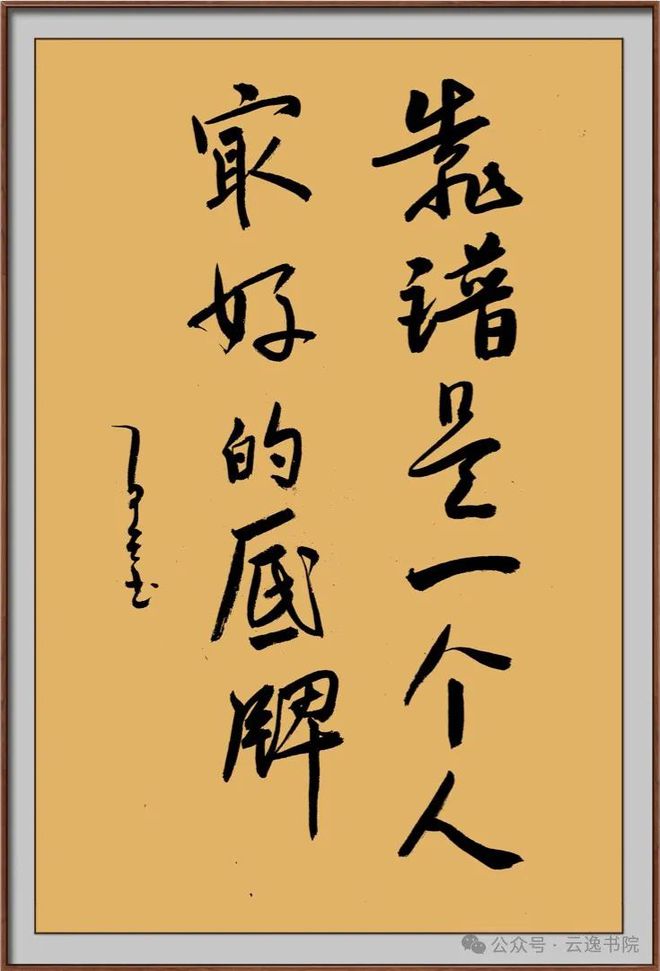 靠谱是一个人
最好的底牌
公众号·云逸书院